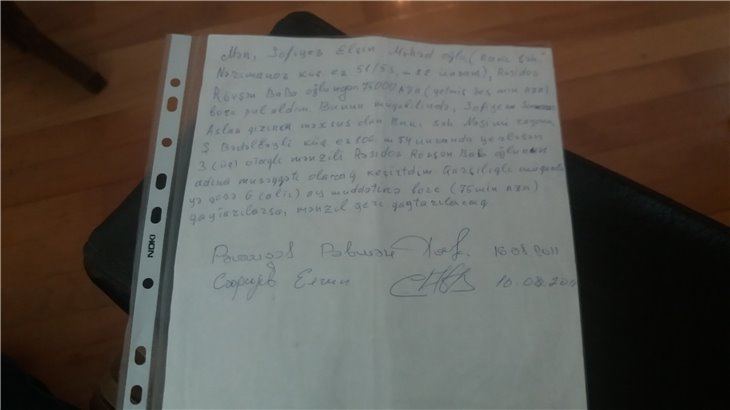 Mən, Səfiyev Elçin Məhəd oğlu (Bakı şəh.
Nərimanov küç ev 51/53, m 82 ünvanı), Rəşidov
Rövşən Baba oğlundan 75000 AZN (yetmiş beş min AZN)
borc pul aldım. Bunun müqabilində, Səfiyeva
Aslan qızına məxsus olan Bakı şəh Nəsimi rayonu,
Ş Bədəlbəyli küç ev 100 m 54 ünvanda yerləşən
3 (üç) otaqlı mənzili Rəşidov Rövşən Baba oğlunun
adına müvəqqəti olaraq keçirtdim. Qarşılıqlı
yə görə 6 (altı) ay müddətinə borc (75 min AZN)
qaytarılarsa, mənzil geri qaytarılacaq
Рашидов Равшан 10.08.2011
Елчин 10.08.201
NOKI